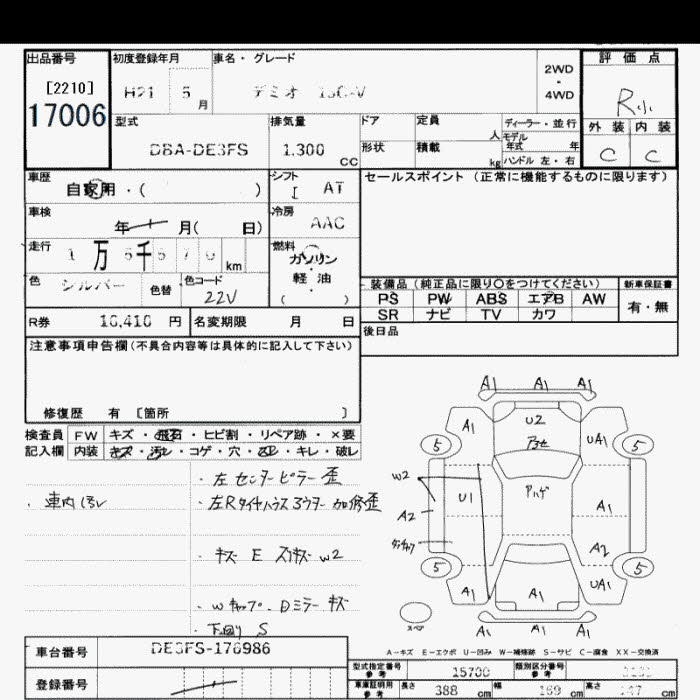 出品番号
[2210]
17006
初度登録年月
H21 5 月
車名・グレード
デミオ 13C-V
2WD
・
4WD
評 価 点
R小
外 装 内 装
C C
型式
DBA-DE3FS
排気量
1.300 CC
ドア
形状
定員 人
積載 kg
ディーラー・並 行
モデル
年式 年
ハンドル 左・右
車歴
自家用・( )
シフト
I AT
車検
年 月( 日)
冷房
AAC
走行
1 万 千 km
燃料
ガソリン
軽・油
( )
色
シルバー
色替
色コード
22V
R券 10,410 円
名変期限 月 日
セールスポイント (正常に機能するものに限ります)
装備品 (純正品に限り○をつけてください)
PS PW ABS エアB AW
SR ナビ TV カワ
新車保証書
有・無
後日品
注意事項申告欄(不具合内容等は具体的に記入して下さい)
修復歴 有 〔箇所 〕
検査員 FW キズ・飛石・ヒビ割・リペア跡・×要
記入欄 内装 キズ・汚レ・コゲ・穴・ ・キレ・破レ
・車内汚レ
・左センターピラー歪
・左Rタイヤハウスアウター加修歪
・キズ E スリキズ W2
・Wキャップ・Dミラーキズ
・下回り S
A1 A1 A1
A1 U2 UA1
5 5
W2 U1 アハゲ A1
A2 A2
5 5
A1 A1 UA1
スペア
A1 A1 A1
A-キズ E-エクボ U-凹み W-補修跡 S-サビ C-腐食 XX-交換済
車台番号 DE3FS-176986
登録番号
型式指定番号
参考
15700
類別区分番号
参考
車庫証明用
参考
長さ 388 cm 幅 169 cm 高さ 47 cm